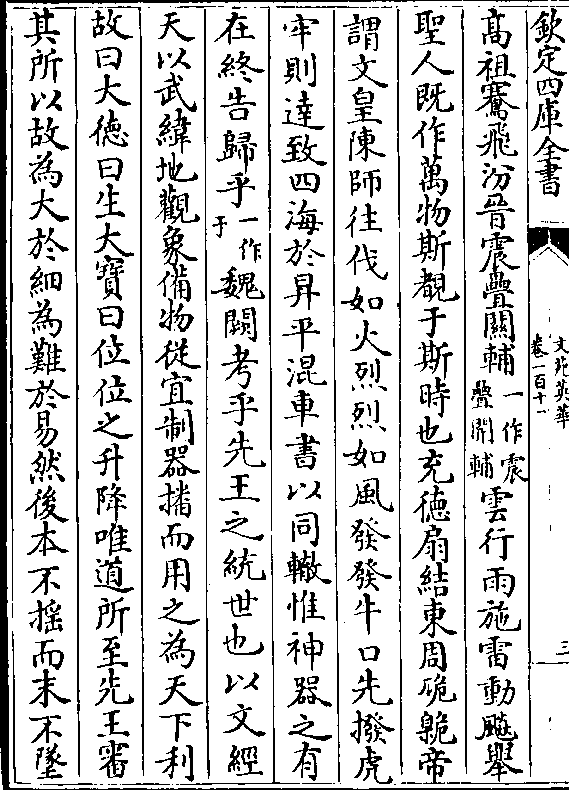 欽定四庫全書
文苑英華
卷一百十一
三
高祖騫飛汾晉震疊關輔一作震疊開輔雲行雨施雷動飈舉
聖人既作萬物斯覩于斯時也充徳扇結東周硊䠥帝
謂文皇陳師往伐如火烈烈如風發發牛口先撥虎
牢則達致四海於昇平混車書以同轍惟神器之有
在終告歸乎一作于魏闕考乎先王之統世也以文經
天以武緯地觀象備物從宜制器播而用之為天下利
故曰大徳曰生大寳曰位位之升降唯道所至先王審
其所以故為大於細為難於易然後本不揺而末不墜